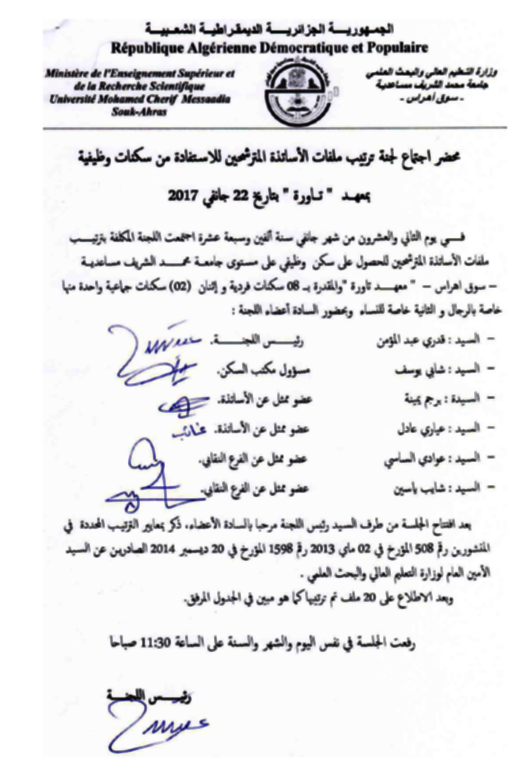 الجمهوريـــة الجزائريـة الديمقراطيـة الشعبيـــة
République Algérienne Démocratique et Populaire
Ministère de l'Enseignement Supérieur et
de la Recherche Scientifique
Université Mohamed Cherif Messaadia
Souk-Ahras
وزارة التعليم العالي والبحث العلمي
جامعة محمد الشريف مساعدية
- سوق أهراس -
محضر اجتماع لجنة ترتيب ملفات الأساتذة المترشحين للاستفادة من سكنات وظيفية
بمعهد " تاورة " بتاريخ 22 جانفي 2017
فــي يوم الثاني والعشرون من شهر جانفي سنة ألفين وسبعة عشرة اجتمعت اللجنة المكلفة بترتيب
ملفات الأساتذة المترشحين للحصول على سكن وظيفي على مستوى جامعة محمد الشريف مساعدية
– سوق اهراس – " معهد تاورة "والمقدرة بـ 08 سكنات فردية و إثنان (02) سكنات جماعية واحدة منها
خاصة بالرجال و الثانية خاصة للنساء وبحضور السادة أعضاء اللجنة :
– السيد : قدري عبد المؤمن رئيس اللجنــة.
– السيد : شابي يوسف مسؤول مكتب السكن.
– السيدة : برجم يمينة عضو ممثل عن الأساتذة.
– السيد : عياري عادل عضو ممثل عن الأساتذة. غائب
– السيد : عوادي الساسي عضو ممثل عن الفرع النقابي.
– السيد : شايب ياسين عضو ممثل عن الفرع النقابي.
بعد افتتاح الجلسة من طرف السيد رئيس اللجنة مرحبا بالسادة الأعضاء، ذكر بمعايير الترتيب المحددة في
المنشورين رقم 508 المؤرخ في 02 ماي 2013 رقم 1598 المؤرخ في 20 ديسمبر 2014 الصادرين عن السيد
الأمين العام لوزارة التعليم العالي والبحث العلمي .
وبعد الاطلاع على 20 ملف تم ترتيبها كما هو مبين في الجدول المرفق.
رفعت الجلسة في نفس اليوم والشهر والسنة على الساعة 11:30 صباحا
رئيس اللجنــة